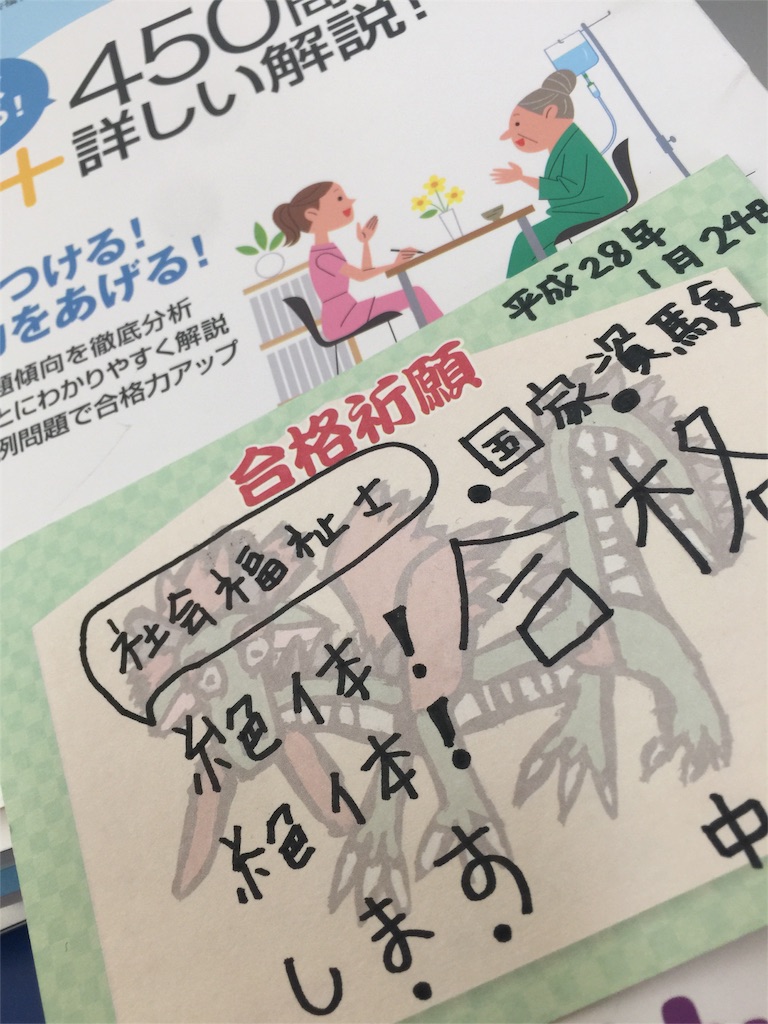 450問
+詳しい解説!
つける!
をあげる!
題傾向を徹底分析
とにわかりやすく解説
例問題で合格力アップ
平成28年
1月24日
合格祈願
国家資験
合格
社会福祉士
絶体!
絶体!
します
中